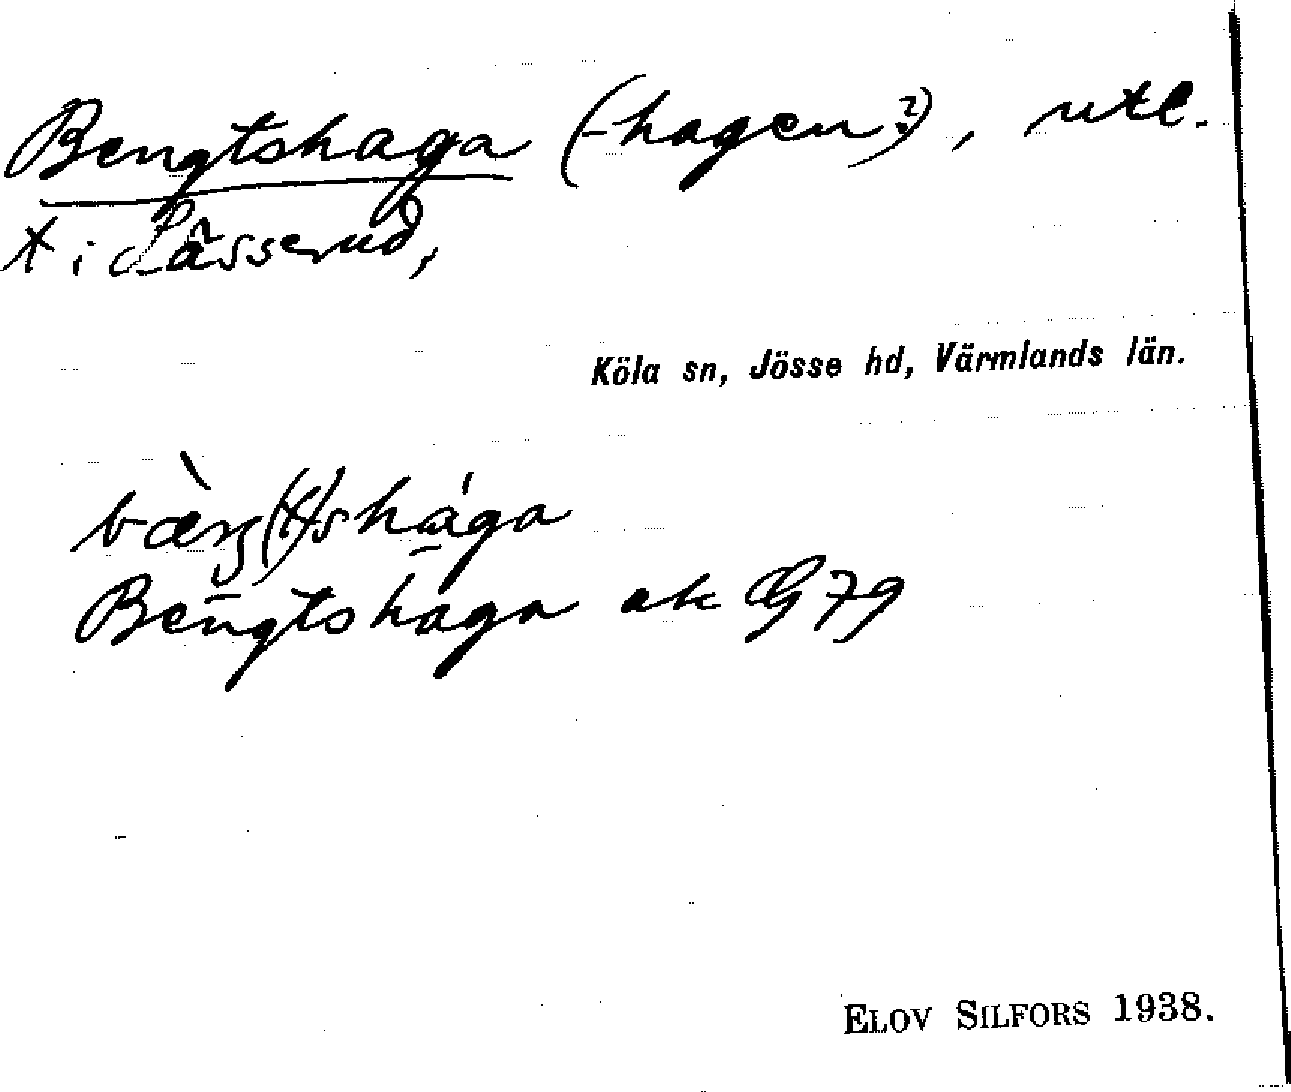 Bengtshaga (-hagen?), utl.
t i Låsserud,
Köla sn, Jösse hd, Värmlands län.
bæ̀ŋ(t)shága
Bengtshaga ek G 79
ELOV SILFORS 1938.